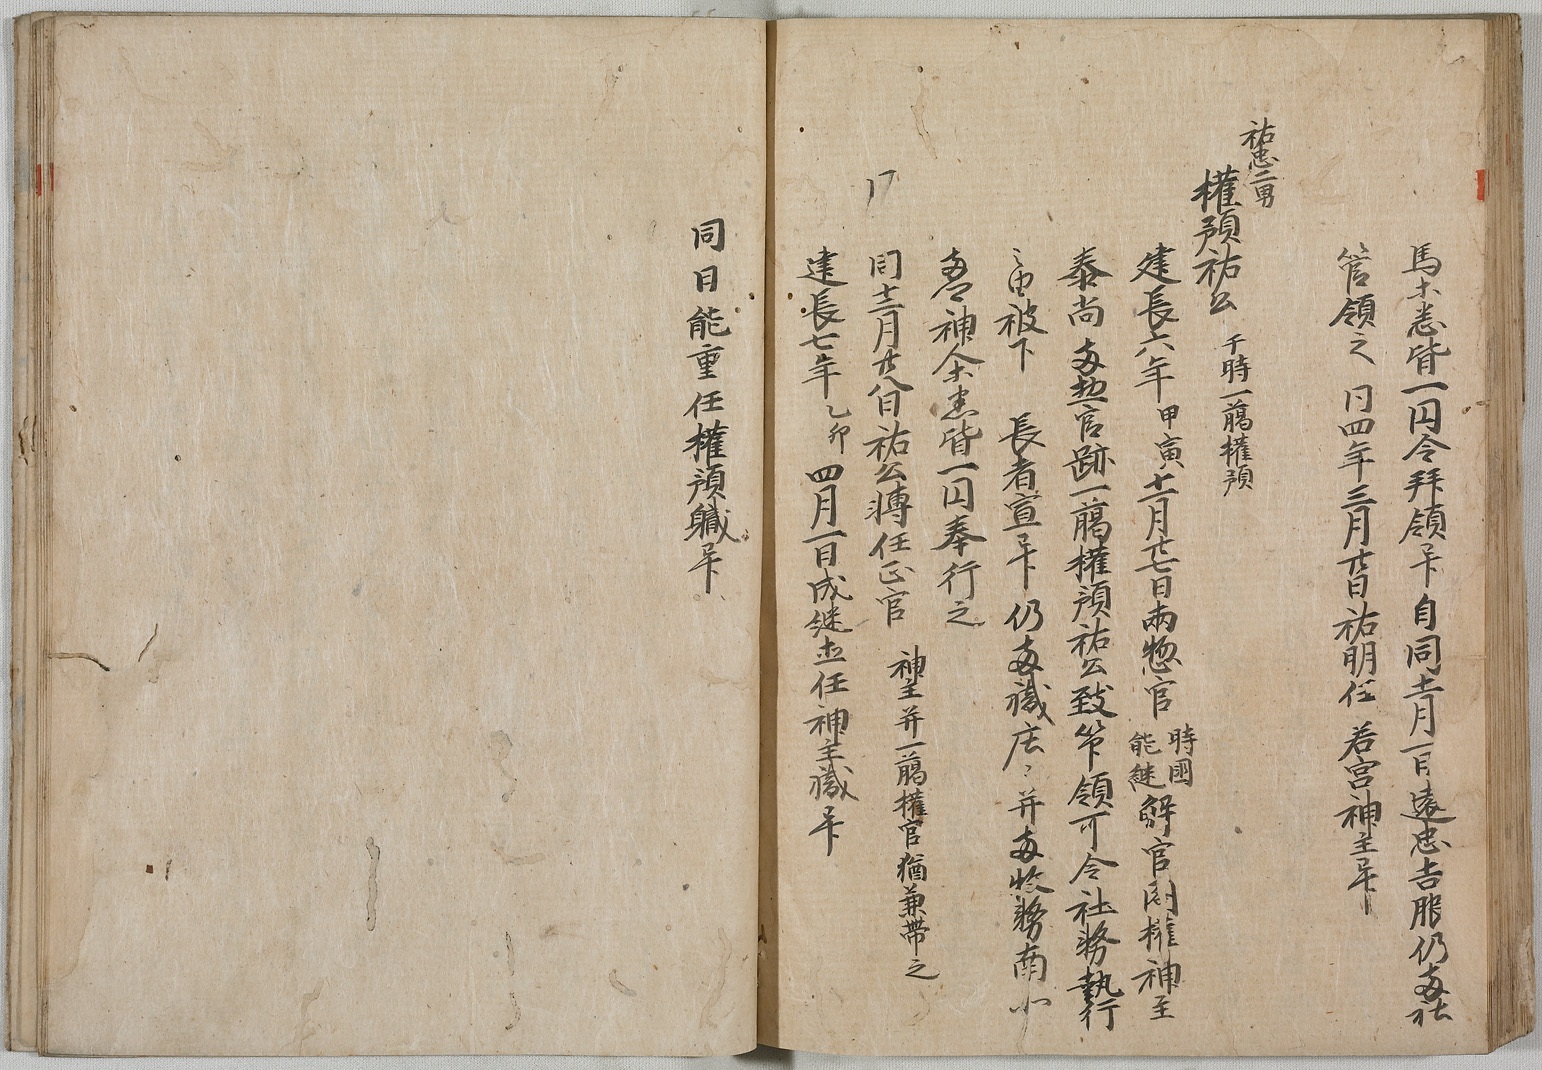 馬牛悉皆一円令拝領畢自同十二月一日遠忠吉服仍両社
管領之 同四年三月廿日祐明任 若宮神主畢
祐忠二男
権預祐公 于時一臈権預
建長六年甲寅十一月廿七日両惣官 時國 能継 解官闕権神主
泰尚両惣官跡一臈権預祐公致管領可令社務執行
之由被下 長者宣畢仍両職庄々并両牧務南北
両神人等悉皆一円奉行之
同十二月廿八日祐公轉任正官 神主并一臈権官猶兼帯之
建長七年乙卯四月一日成継還任神主職畢
同日能重任権預職畢